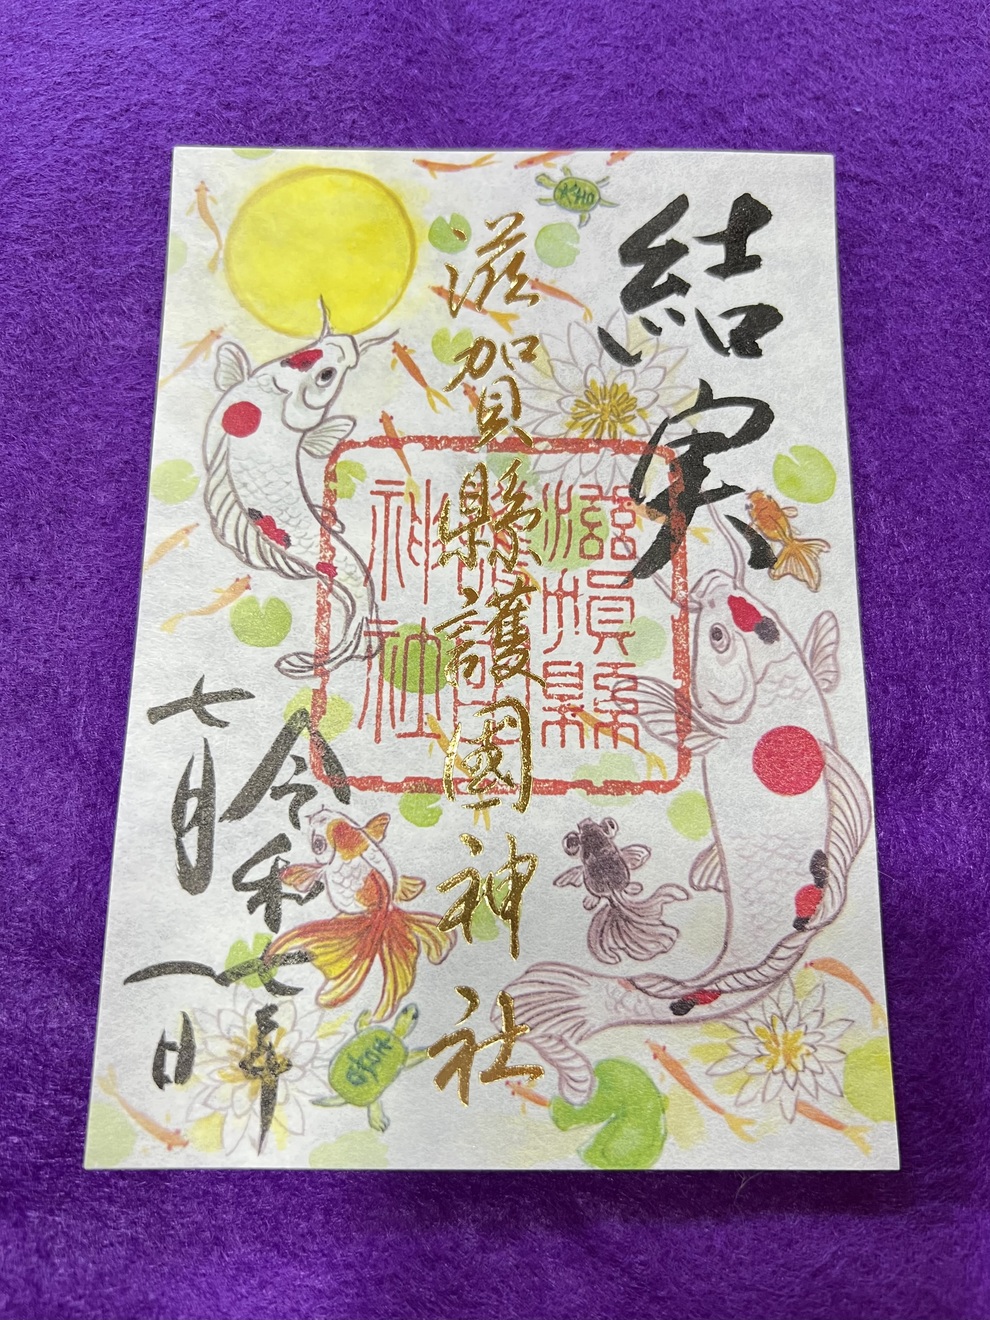 結実
滋賀縣護國神社
滋賀縣
護國
神社
令和七年
七月一日
大吉